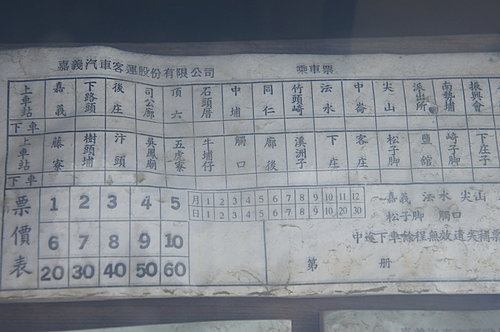 嘉義汽車客運股份有限公司 乘車票
上車站 嘉義 下路頭 後庄 司公廍 頂六 石頭厝 中埔 同仁 竹頭崎 法水 中崙 尖山 派出所 南勢埔 振興會
下車
上車站 藤寮 樹頭埔 汴頭 吳鳳廟 五虎寮 牛埔仔 觸口 廍後 溪洲子 下庄 客庄 松子脚 鹽館 崎子脚 下庄子
下車
票價表
1 2 3 4 5
6 7 8 9 10
20 30 40 50 60
月 1 2 3 4 5 6 7 8 9 10 11 12
日 1 2 3 4 5 6 7 8 9 10 20 30
嘉義 法水 尖山
松子脚 觸口
中途下車餘程無效遺失補票
第 册